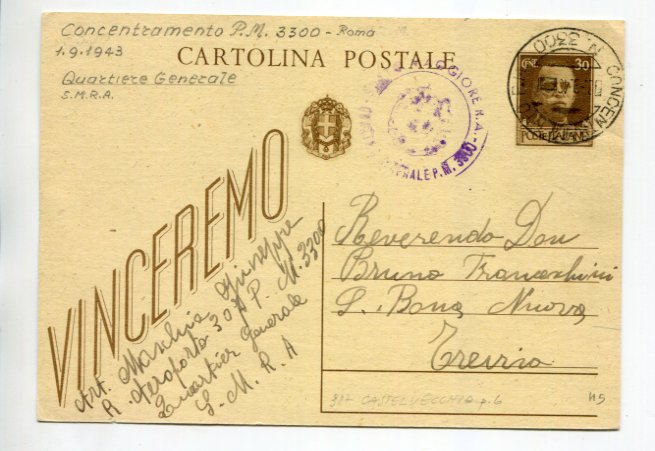 Concentramento P.M. 3300 - Roma
1.9.1943
Quartiere Generale
S.M.R.A.
CARTOLINA POSTALE
CENT. 30
POSTE ITALIANE
N. 3300
CONCEN
GIORE R.A.
RALE P.M. 3300
VINCEREMO
Art. Giuseppe
R. Aeroporto 301 P. M. 3300
Quartier Generale
S. M. R. A
Reverendo Don
Bruno Franceschini
S. Bona Nuova
Treviso
CASTELVECCHIO p. 6